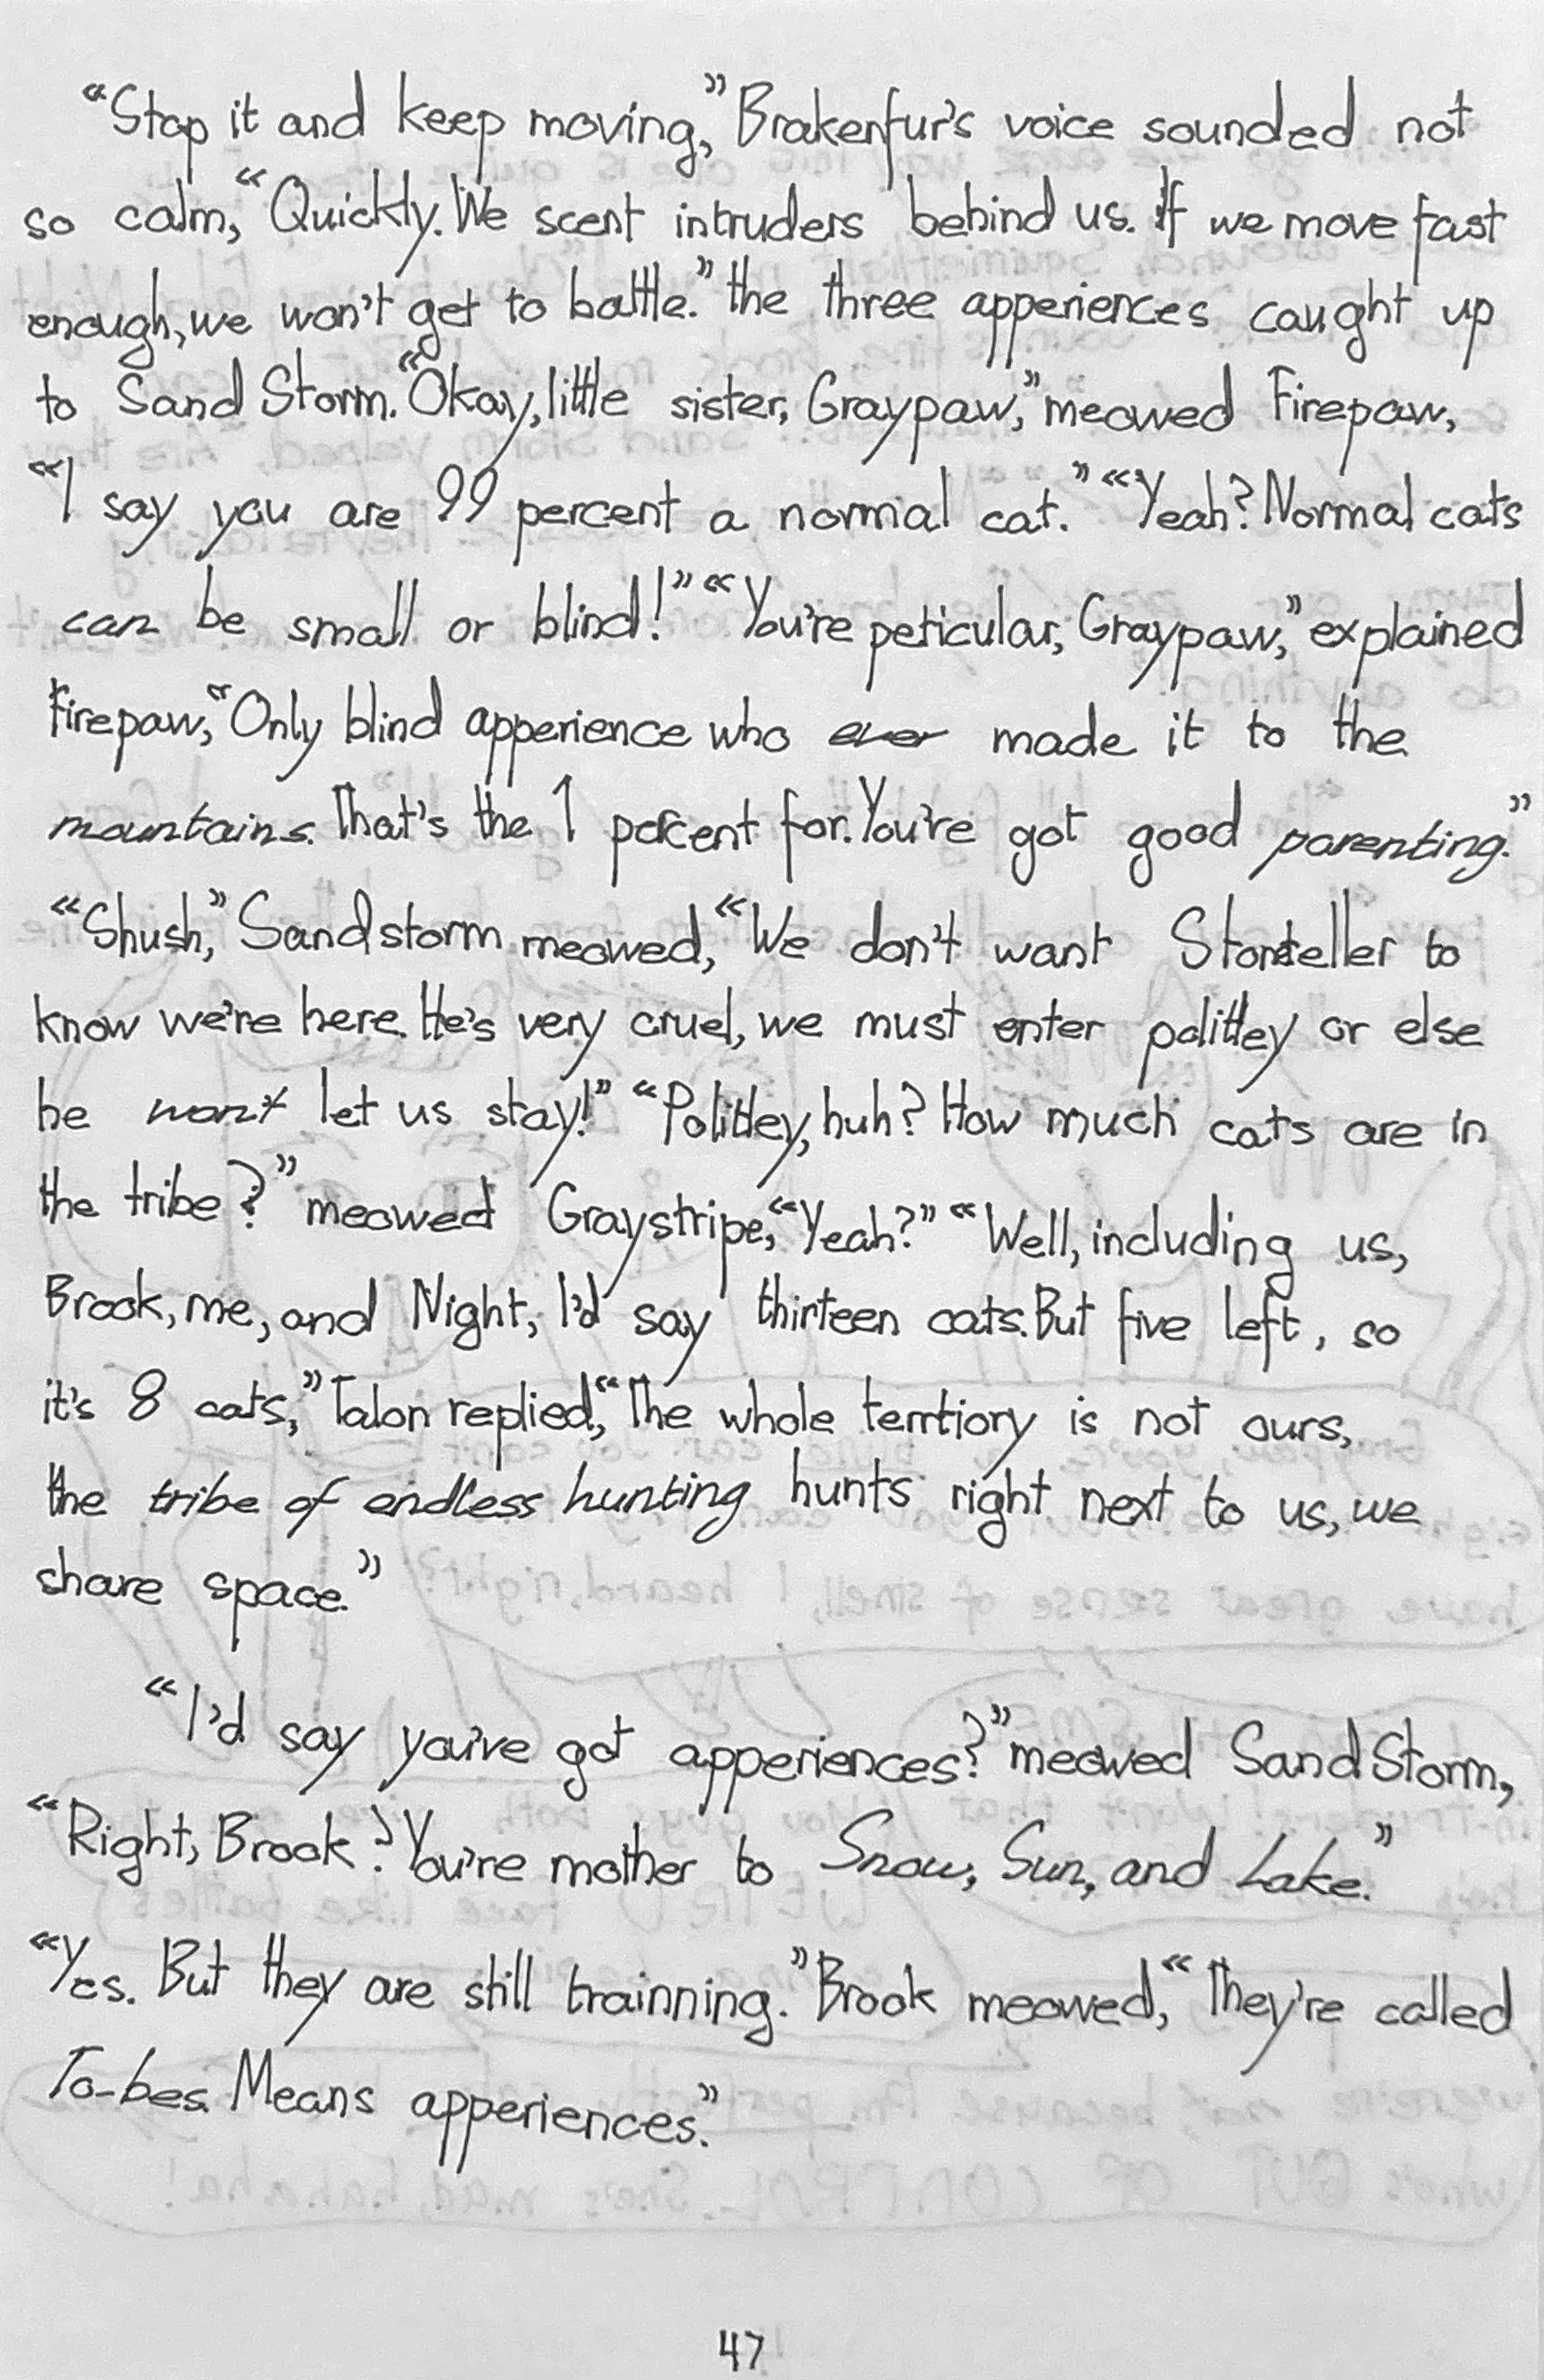 “Stop it and keep moving,” Brakenfur's voice sounded not
so calm, “Quickly. We scent intruders behind us. If we move fast
enough, we won't get to battle.” the three apperiences caught up
to Sand Storm. “Okay, little sister, Graypaw,” meowed Firepaw,
“I say you are 99 percent a normal cat.” “Yeah? Normal cats
can be small or blind!” “You're peticular, Graypaw,” explained
Firepaw, “Only blind apperience who ever made it to the
mountains. That's the 1 percent for. You're got good parenting.”
“Shush,” Sandstorm meowed, “We don't want Stonteller to
know we're here. He's very cruel, we must enter politley or else
he won't let us stay!” “Politley, huh? How much cats are in
the tribe?” meowed Graystripe, “Yeah?” “Well, including us,
Brook, me, and Night, I'd say thirteen cats. But five left, so
it's 8 cats,” Talon replied, “The whole terrtiory is not ours,
the tribe of endless hunting hunts right next to us, we
share space.”
“I'd say you've got apperiences?” meowed Sand Storm,
“Right, Brook? You're mother to Snow, Sun, and Lake.”
“Yes. But they are still trainning.” Brook meowed, “They're called
To-bes. Means apperiences.”
47